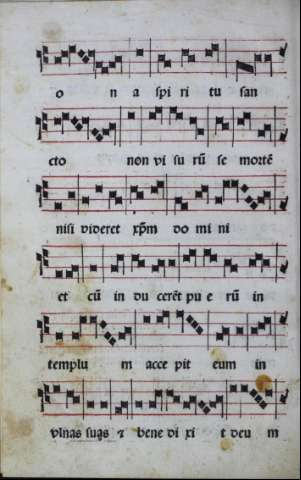 o n a spi ri tu san
cto non vi su rū se mortē
nisi videret xp̄m do mi ni
et cū in du cerēt pu e rū in
templu m acce pit eum in
vlnas suas ⁊ bene di xi t deu m